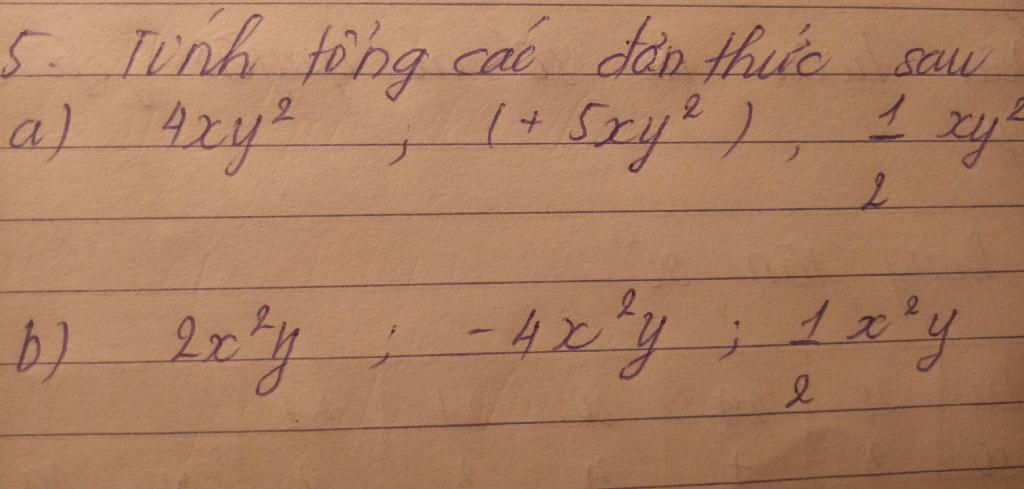 5. Tính tổng các đơn thức sau
a) 4xy² ; (+ 5xy²) , 1/2 xy²
b) 2x²y ; -4x²y ; 1/2 x²y